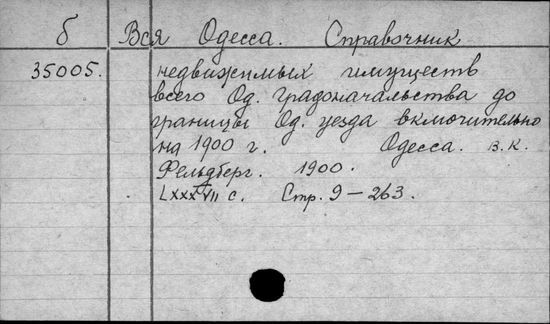 б Вся Одесса. Справочник
35005. недвижимых имуществ
всего Од. градоначальства до
границы Од. уезда включительно
на 1900 г. Одесса. з.к.
Фельдберг. 1900.
LXXXVII с. Стр. 9-263.